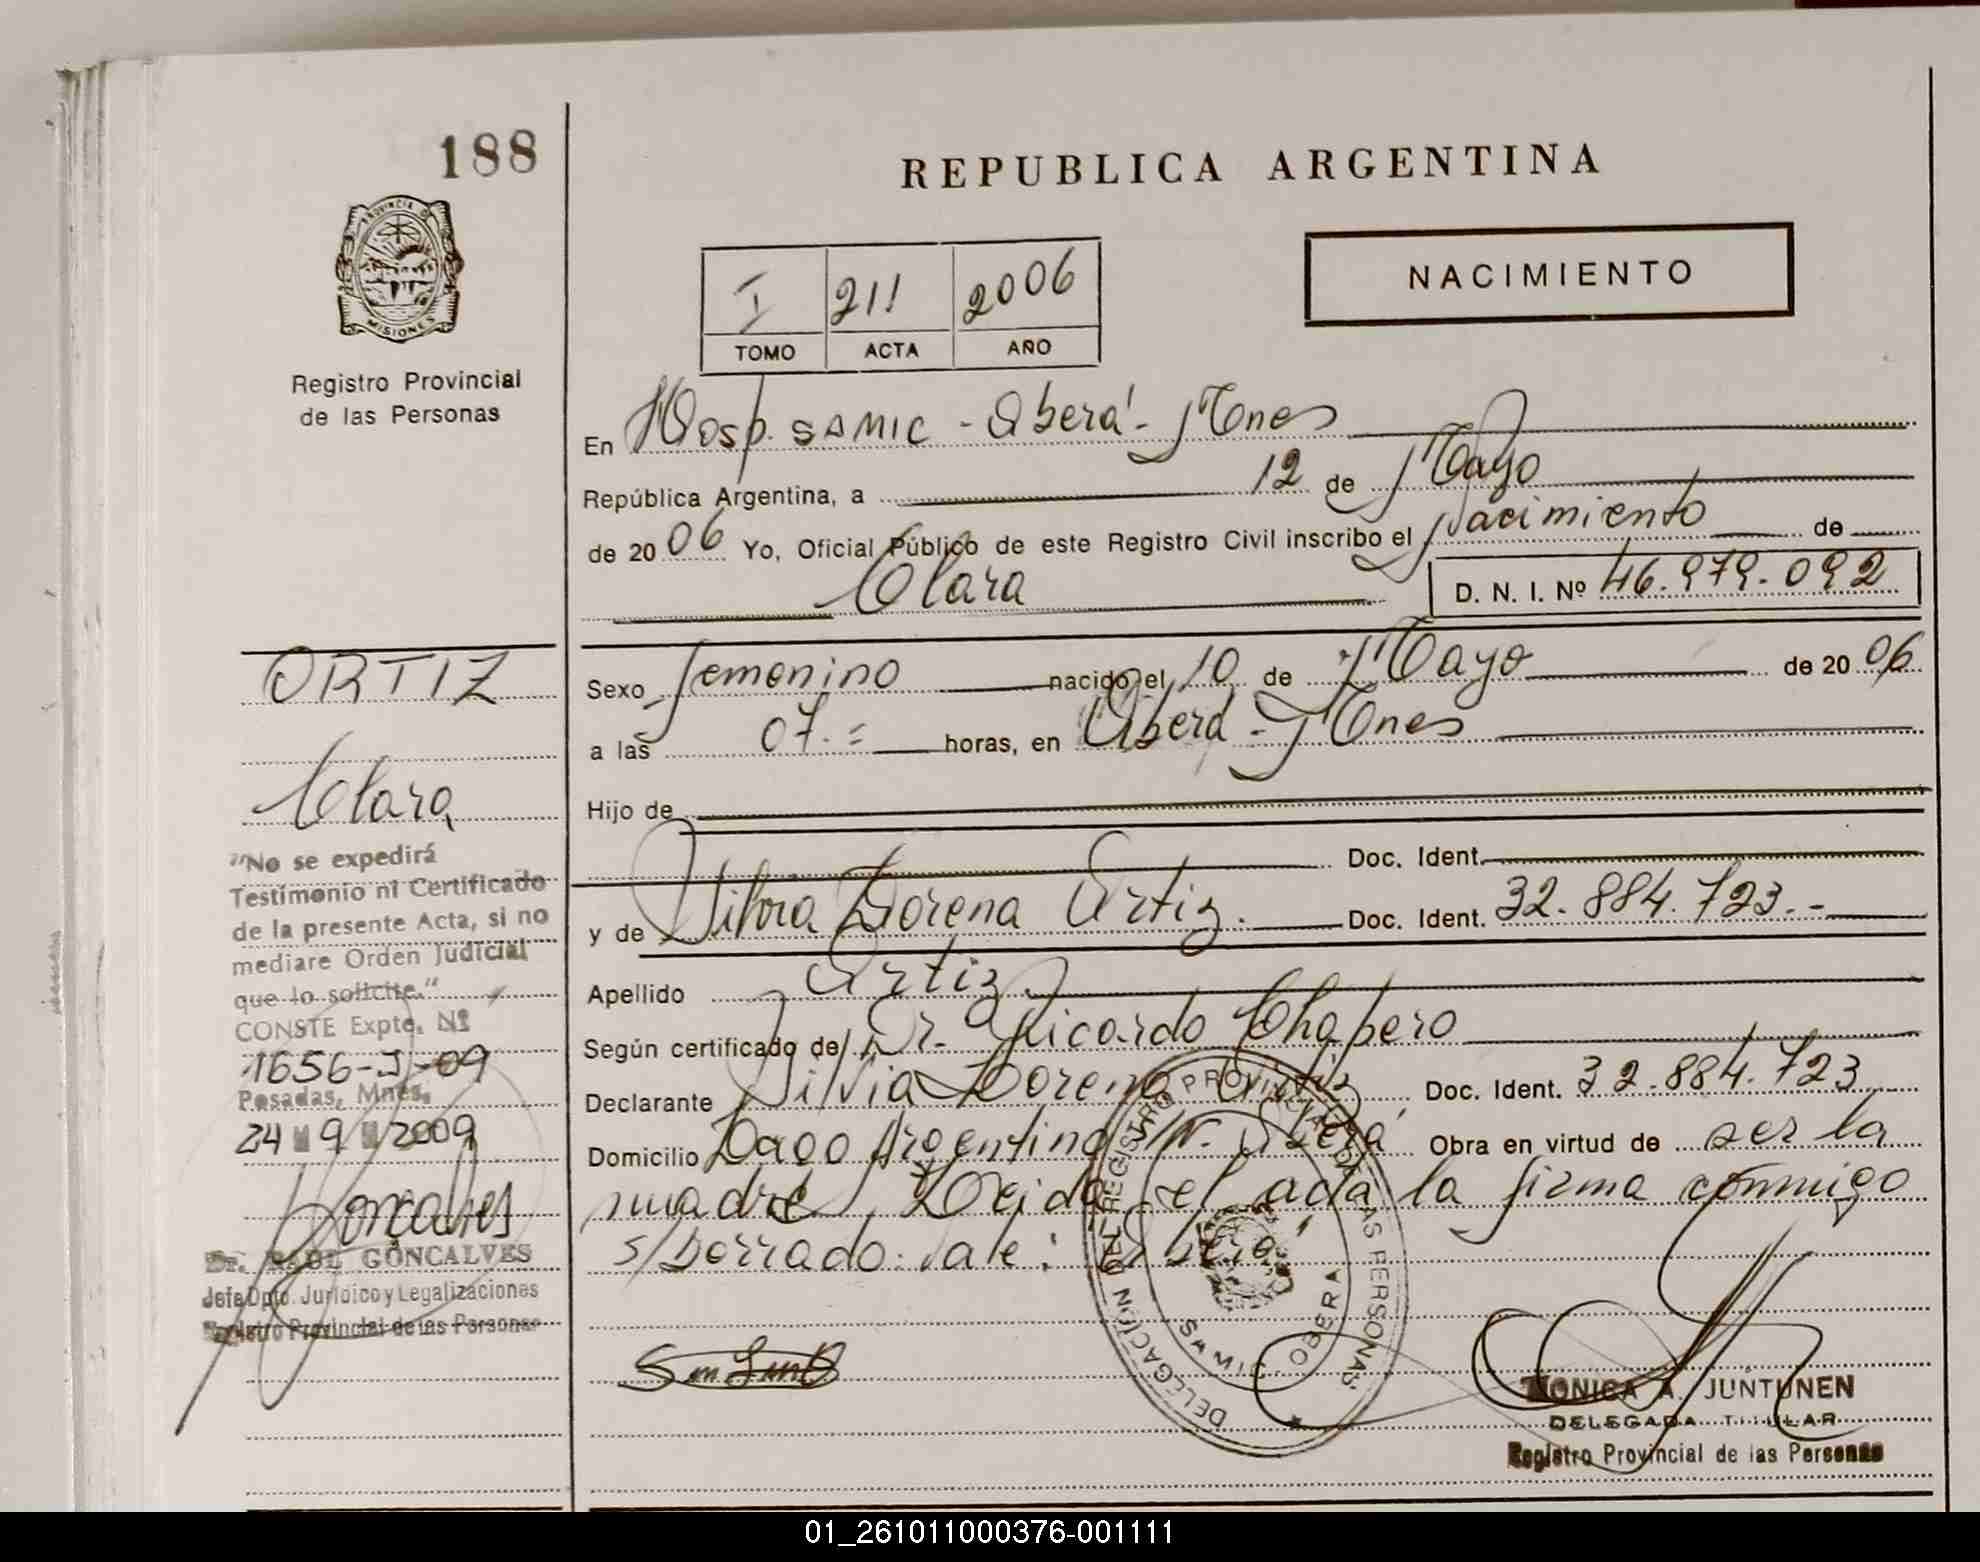 188
REPUBLICA ARGENTINA
PROVINCIA D
MISIONES
Registro Provincial
de las Personas
NACIMIENTO
I 211 2006
TOMO ACTA AÑO
En Hosp. SAMIC - Oberá - Mnes
República Argentina, a 12 de Mayo
de 2006 Yo, Oficial Público de este Registro Civil inscribo el Nacimiento de
Clara D. N. I. Nº 46.979.092
Sexo femenino nacido el 10 de Mayo de 2006
a las 07.= horas, en Oberá - Mnes
Hijo de
Doc. Ident.
y de Silvia Lorena Ortiz. Doc. Ident. 32.884.723.-
Apellido Ortiz.
Según certificado de Dr. Ricardo Chapero
Declarante Silvia Lorena Ortiz Doc. Ident. 32.884.723
Domicilio Lago Argentino S/N. Oberá Obra en virtud de ser la
madre Leida el acta la firma conmigo
s/borrado: vale: Oberá
ORTIZ
Clara
"No se expedirá
Testimonio ni Certificado
de la presente Acta, si no
mediare Orden Judicial
que lo solicite."
CONSTE Expte. Nº
1656-J-09
Posadas, Mnes.
24 9 2009
Goncalves
Dr. RAUL GONCALVES
Jefe Dpto. Jurídico y Legalizaciones
Registro Provincial de las Personas
DELEGACIÓN DEL REGISTRO PROVINCIAL DE LAS PERSONAS
SAMIC. OBERA
MONICA A. JUNTUNEN
DELEGADA TITULAR
Registro Provincial de las Personas
01_261011000376-001111